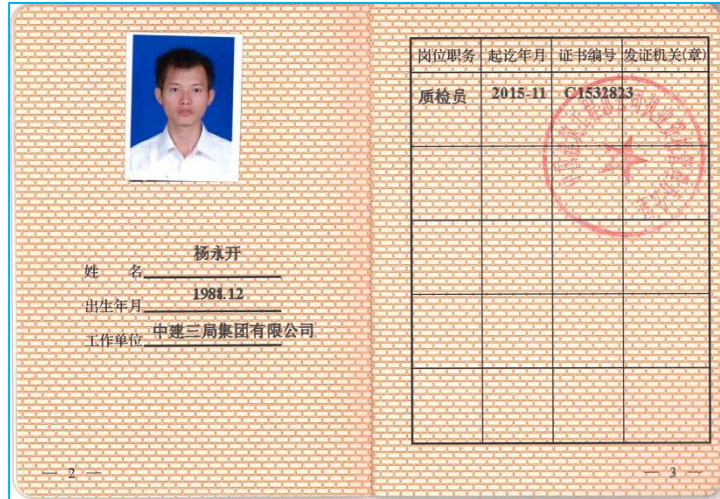 姓 名 杨永开
出生年月 1988.12
工作单位 中建三局集团有限公司
— 2 —
岗位职务 起讫年月 证书编号 发证机关(章)
质检员 2015-11 C1532823
— 3 —